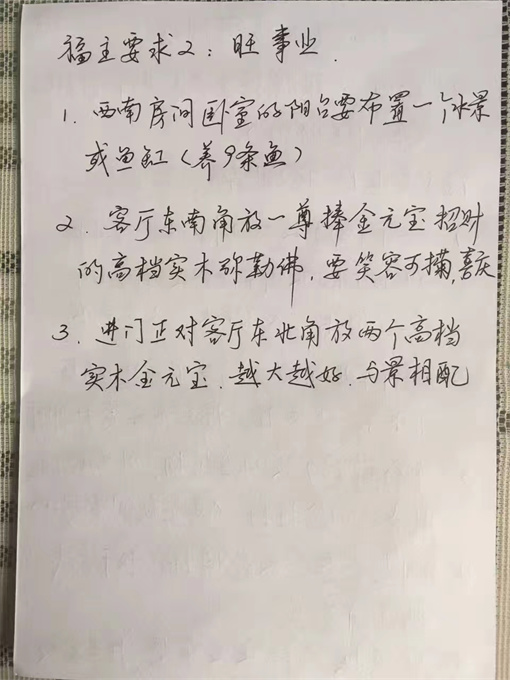 福主要求2：旺事业.
1. 西南房间卧室的阳台要布置一个水景
或鱼缸（养9条鱼）
2. 客厅东南角放一尊捧金元宝招财
的高档实木弥勒佛，要笑容可掬，喜庆
3. 进门正对客厅东北角放两个高档
实木金元宝.越大越好.与景相配